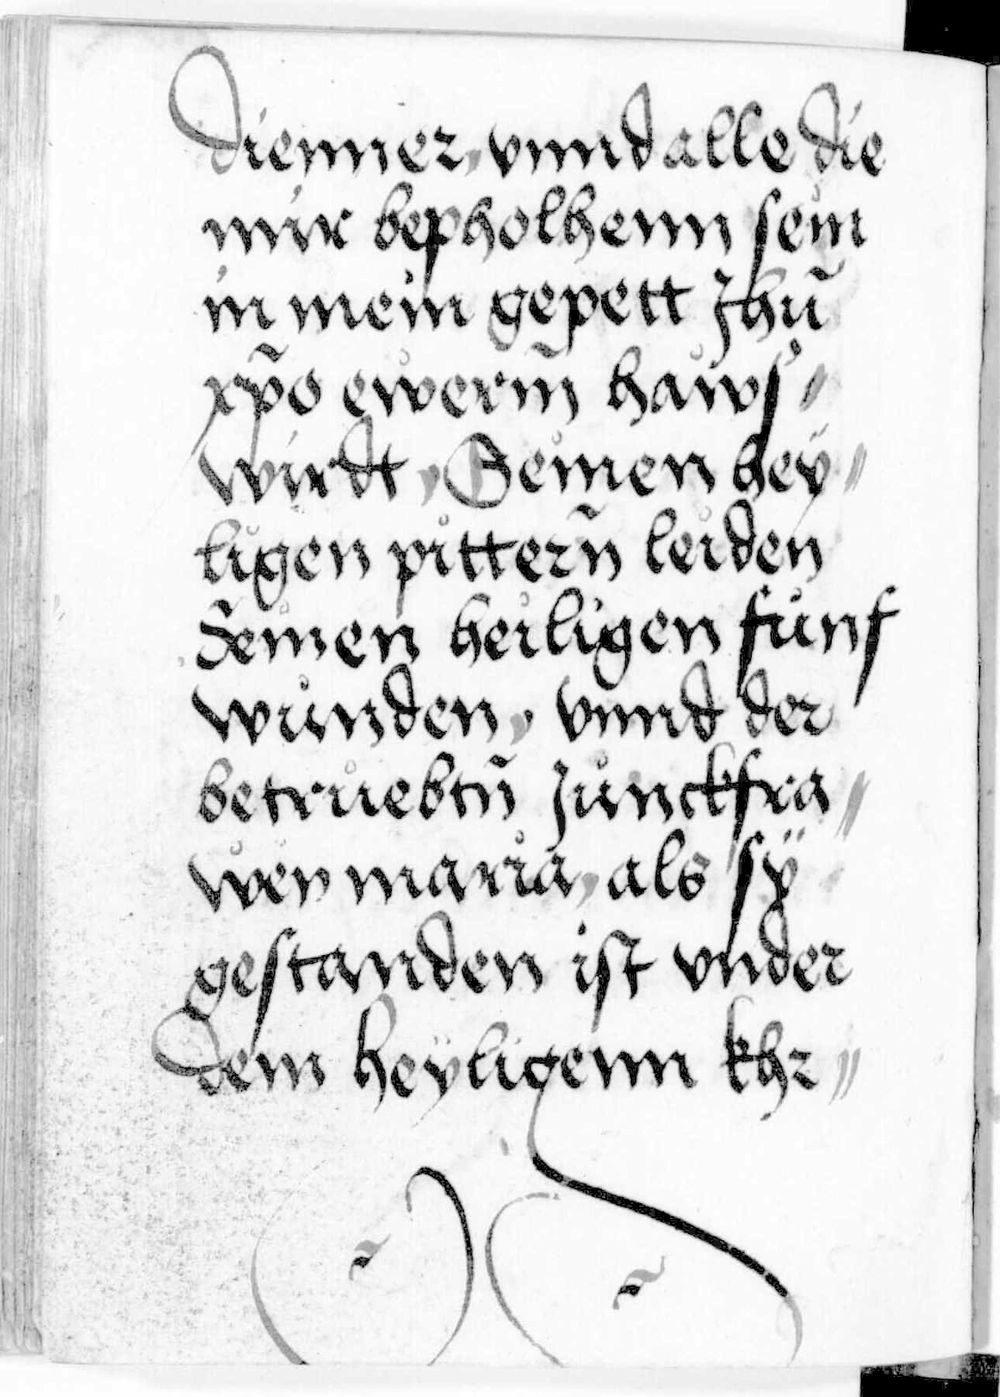 dienner, vnnd alle die
mir bepholhenn sein
in mein gepett Jhū
xp̄o ewerm̄ haws//
wirdt, Seinen hey//
ligen pitterñ leiden
Seinen heiligen fůnf
wůnden, vnnd der
betruebtñ Jůnckfra//
wen maria, als sÿ
gestanden ist vnder
dem heÿligenn khr//